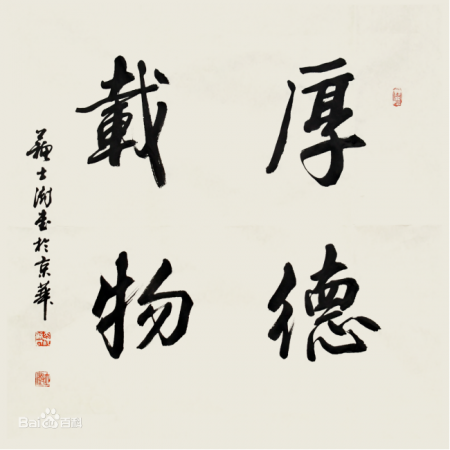 厚德
載物
蘇士澍書於京華
Baidu百科